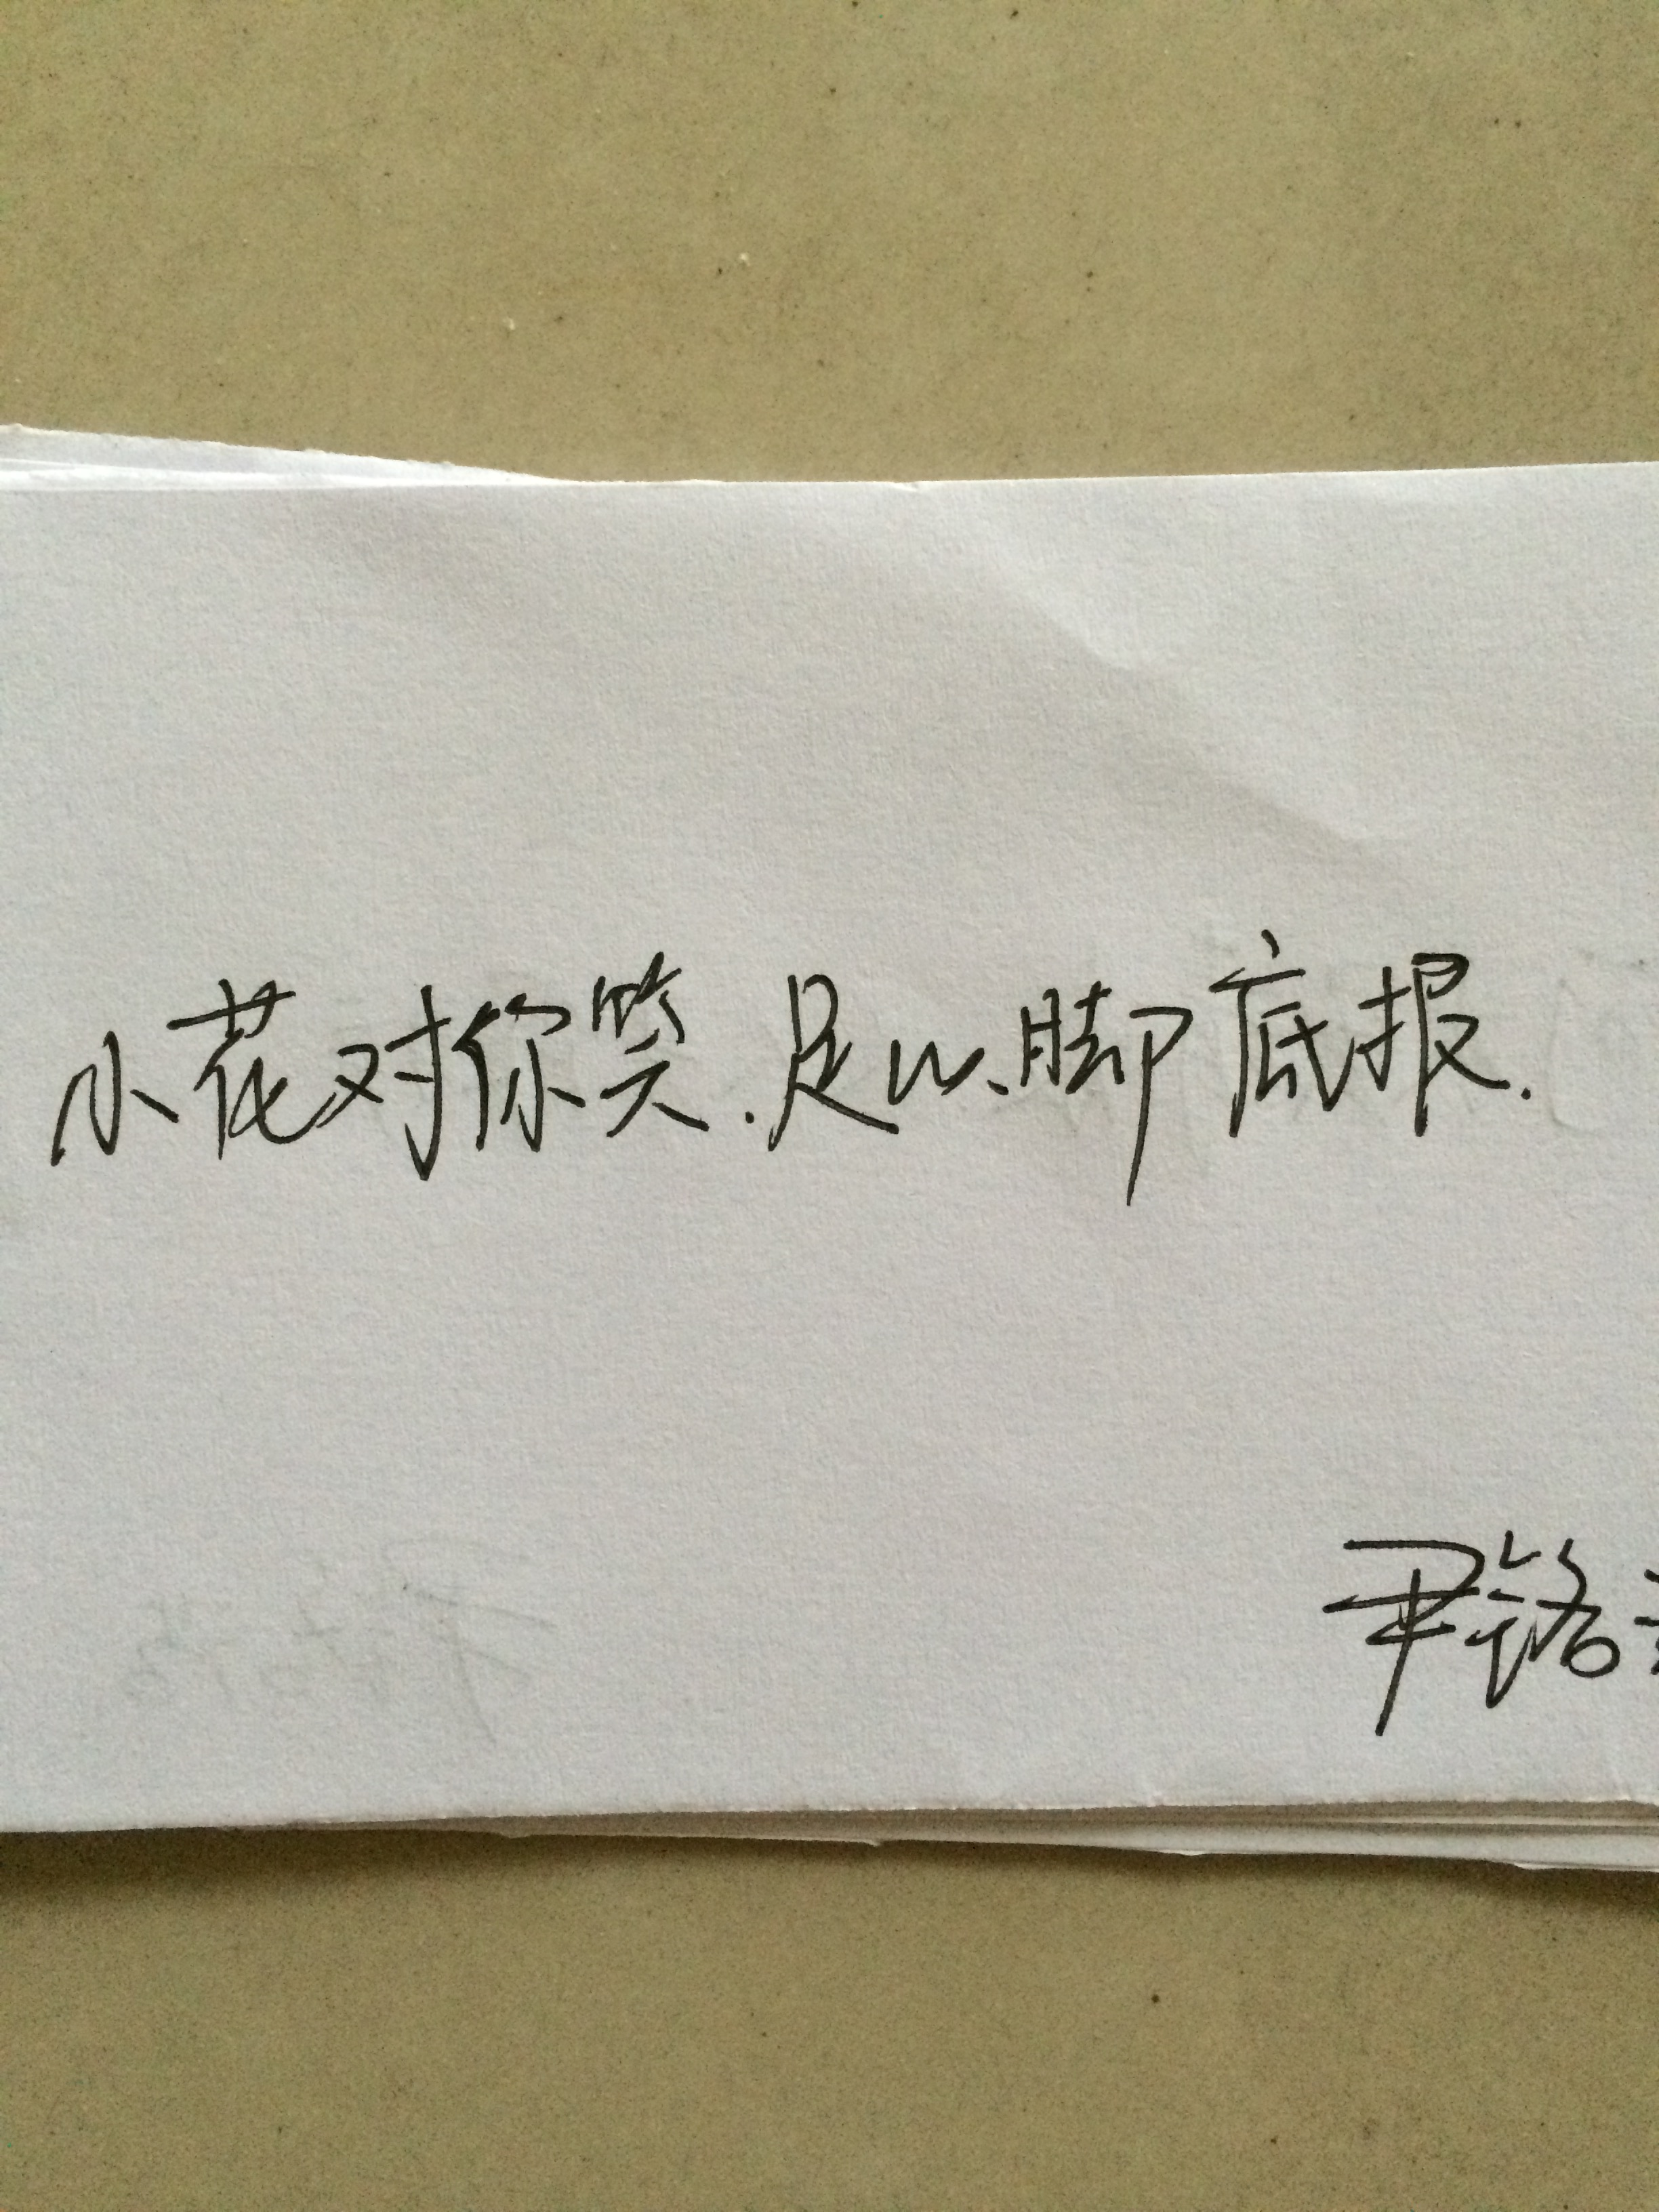 小花对你笑.足以脚底报.
尹铭